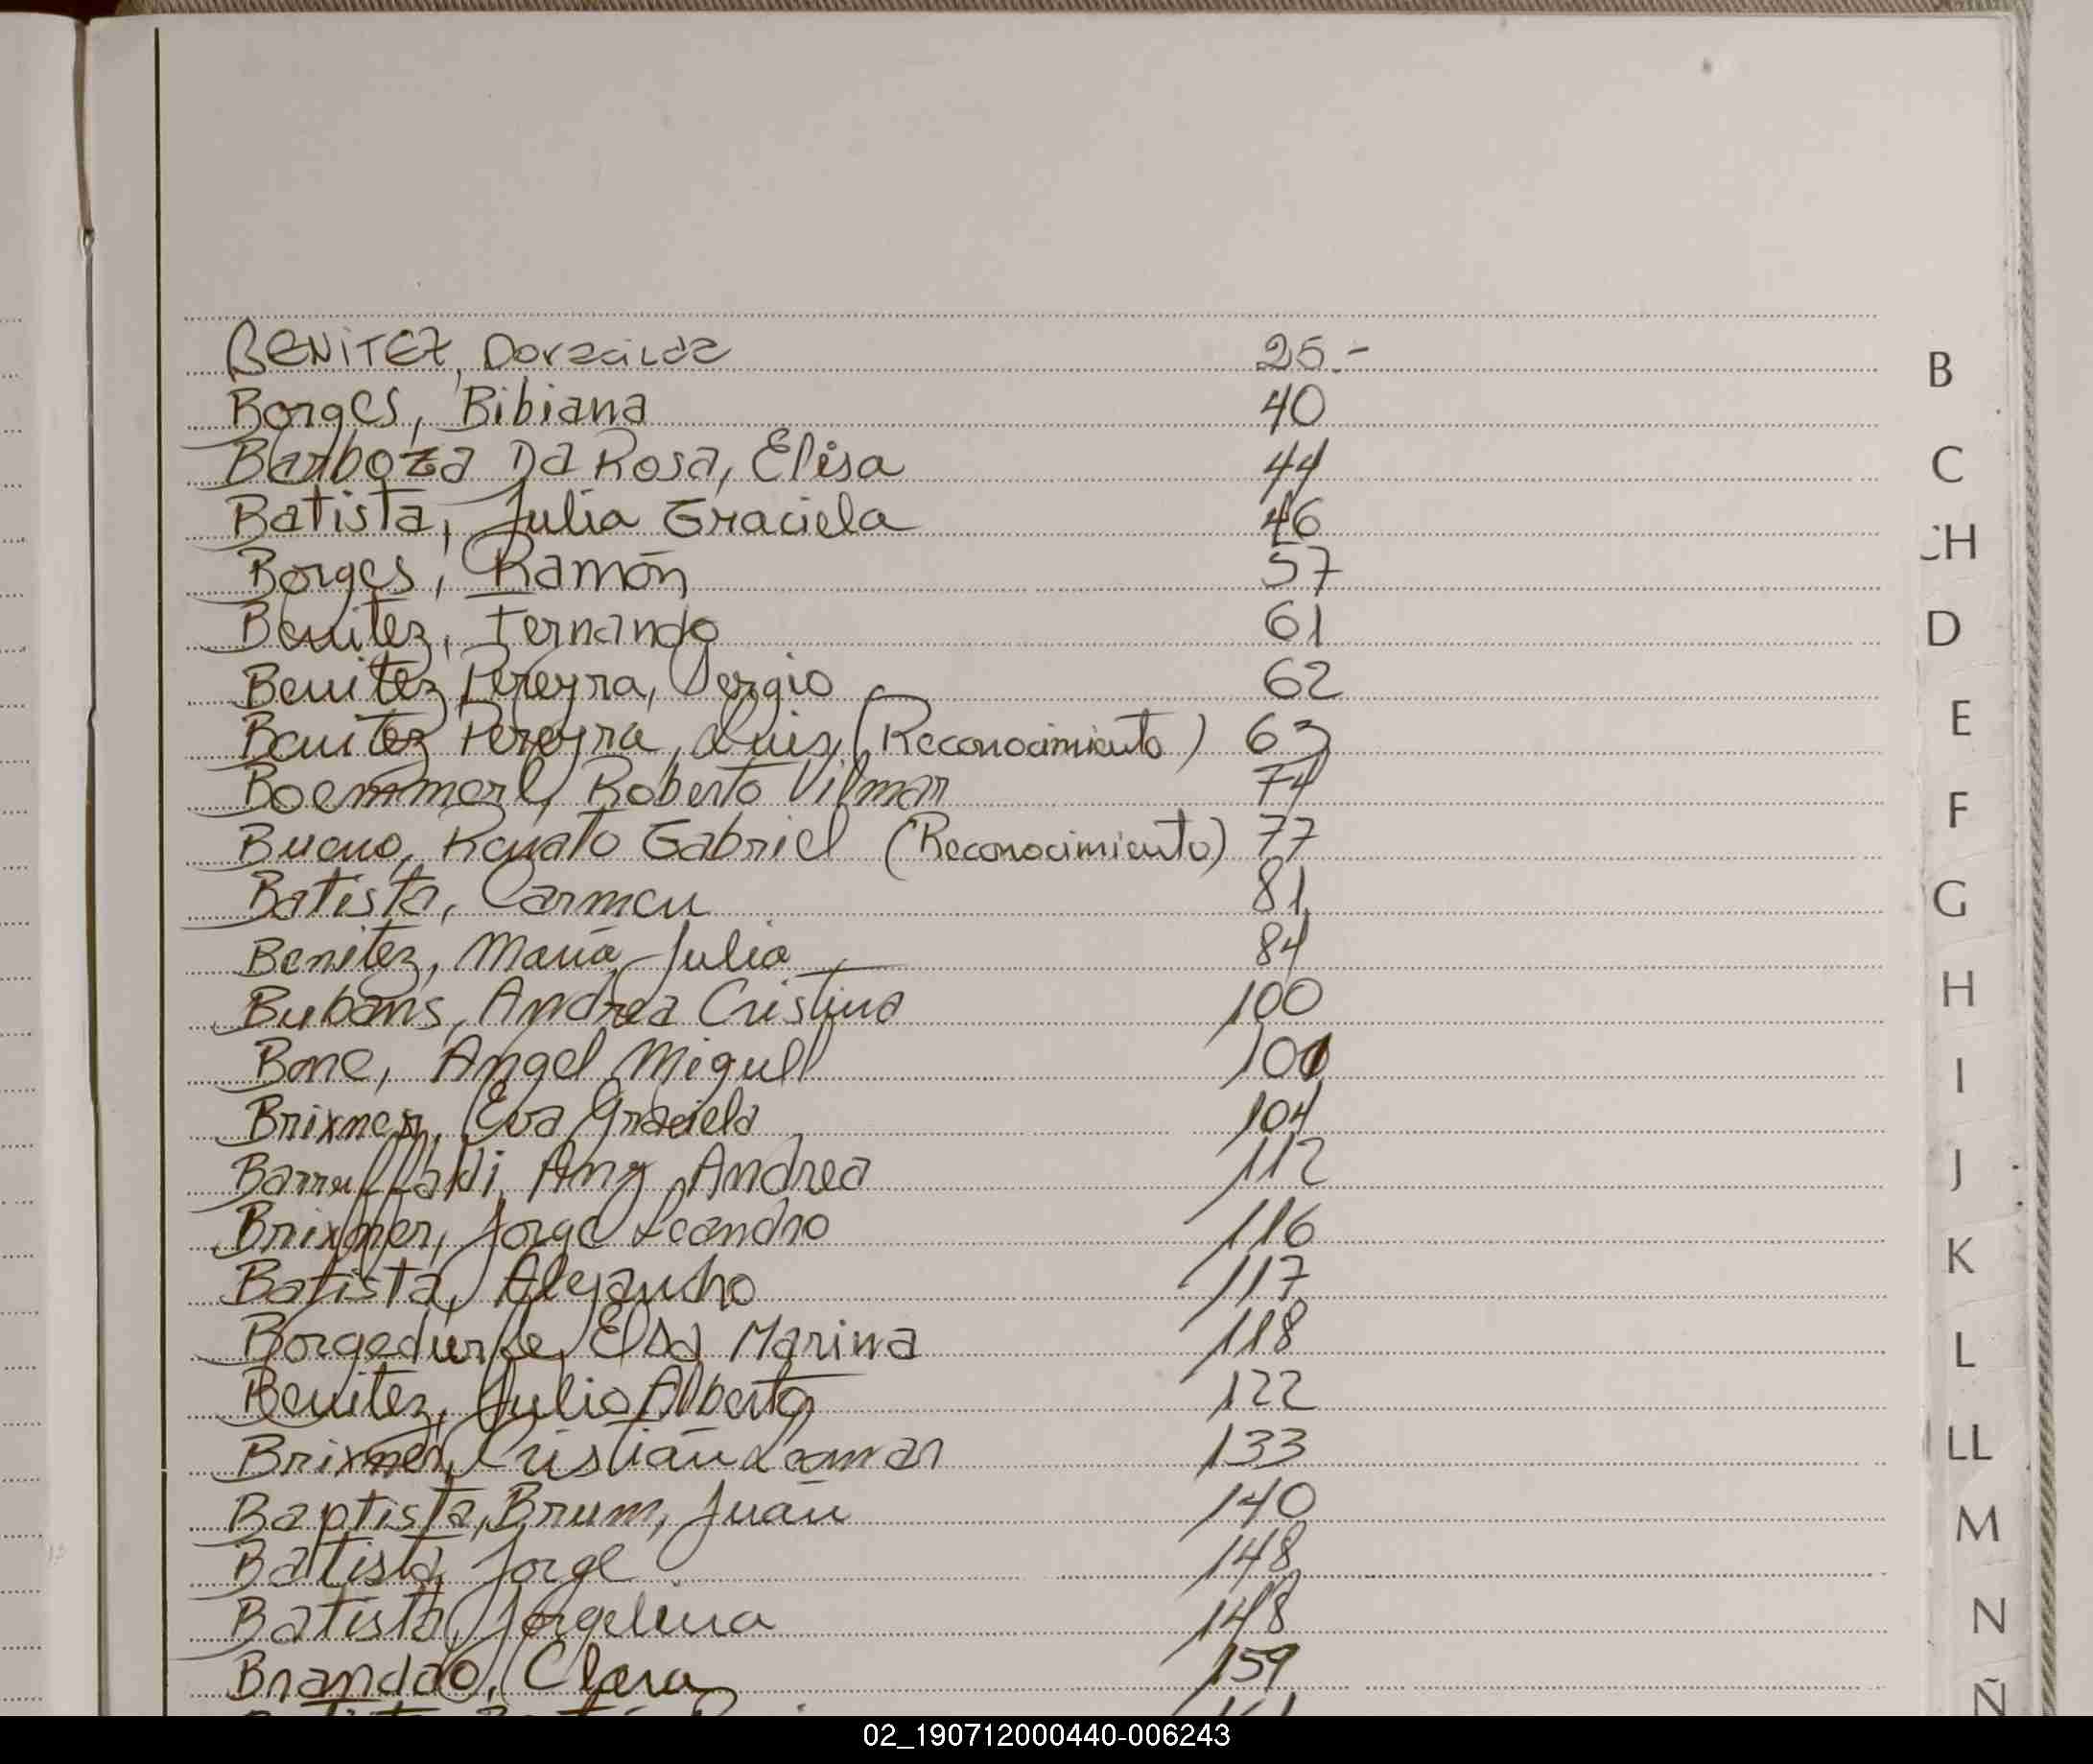 BENITEZ, 25.-
Borges, Bibiana 40
Barboza Da Rosa, Elisa 44
Batista, Julia Graciela 46
Borges, Ramón 57
Benitez, Fernando 61
Benitez Pereyra, Sergio 62
Benitez Pereyra, Luis (Reconocimiento) 63
Boemmerl, Roberto Vilmar 74
Bueno, Renato Gabriel (Reconocimiento) 77
Batista, Carmen 81
Benitez, María Julia 84
Bubans, Andrea Cristina 100
Bone, Angel Miguel 101
Brixner, Eva Graciela 104
Barruffaldi, Ana Andrea 112
Brixner, Jorge Leandro 116
Batista, Alejandro 117
Elsa Marina 118
Benitez, Julio Alberto 122
Brixner, Cristian 133
Baptista, Brum, Juan 140
Batista, Jorge 148
Batista, Jorgelina 148
Brandao, Clara 159
B
C
CH
D
E
F
G
H
I
J
K
L
LL
M
N
Ñ
02_190712000440-006243